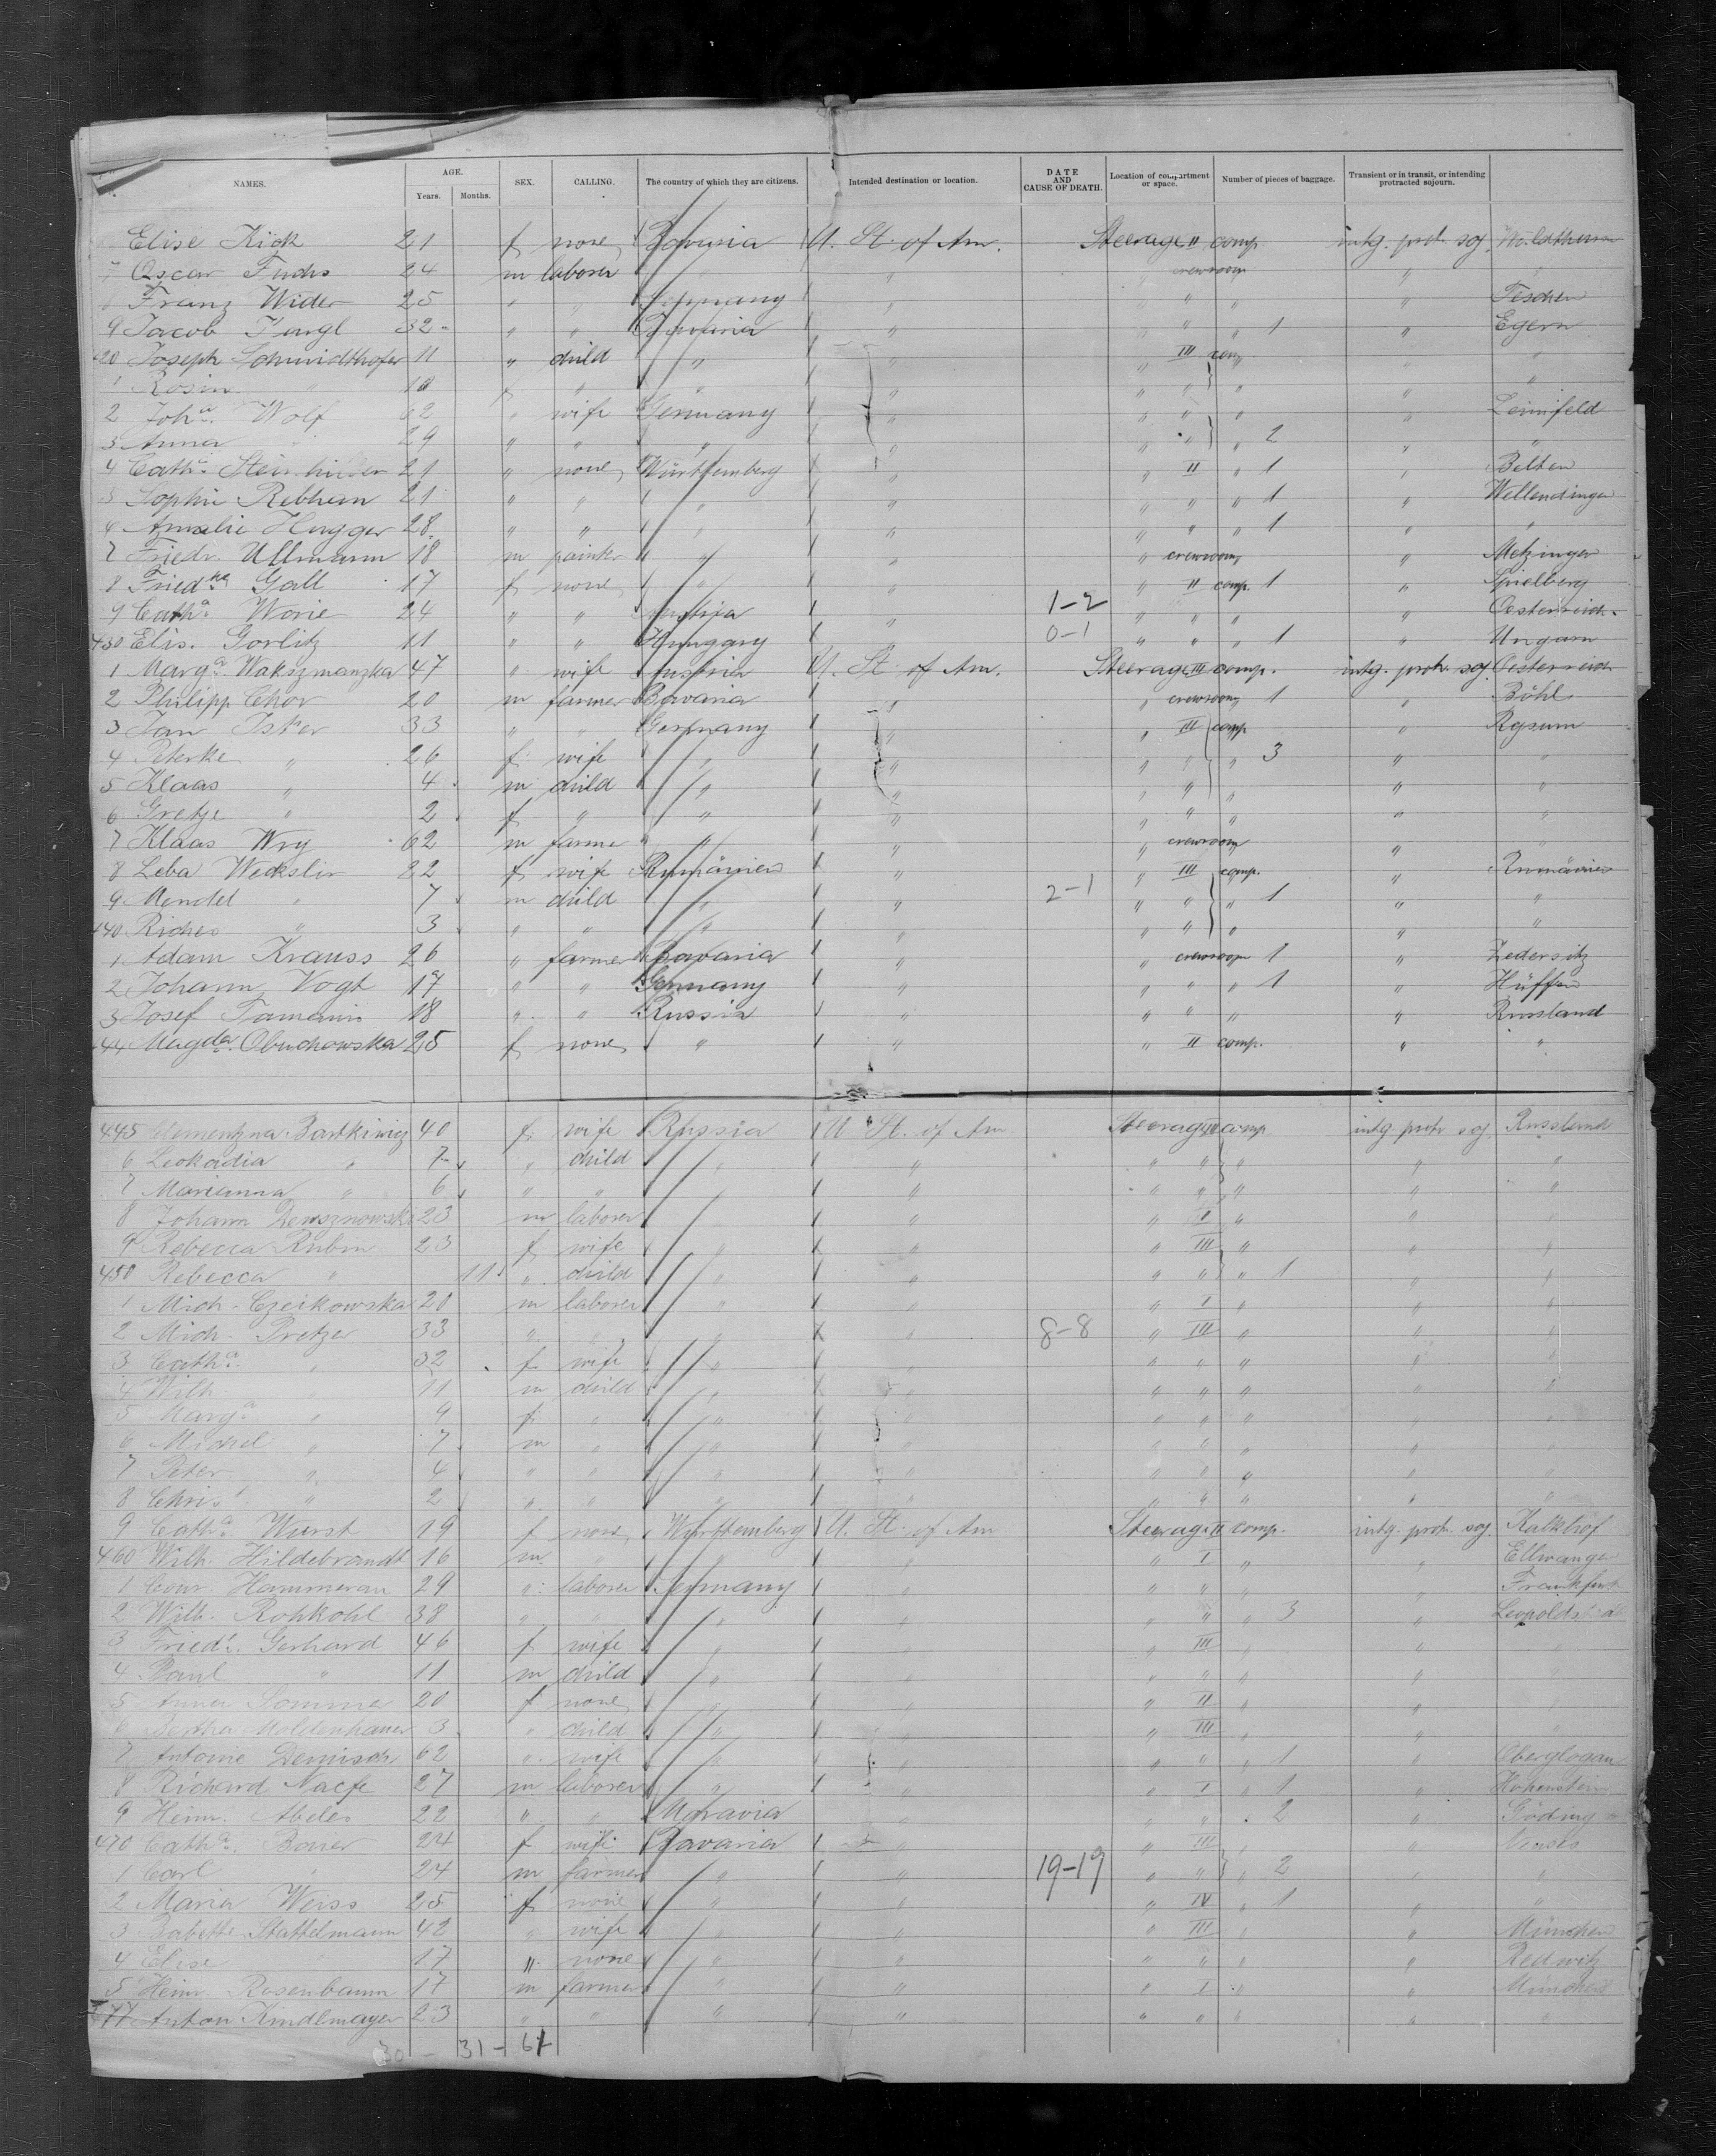 NAMES. AGE. Years. Months. SEX. CALLING. The country of which they are citizens. Intended destination or location. DATE AND CAUSE OF DEATH. Location of compartment or space. Number of pieces of baggage. Transient or in transit, or intending protracted sojourn.
Elise Kick 21 f none Bavaria U. St. of Am. Steerage II comp. intg. prot. soj.
7 Oscar Fuchs 24 m laborer " " " crewroom "
Franz Wider 25 " " Germany " " " " " Teschen
9 Jacob 32 " " Bavaria " " " " 1 " Egern
420 Joseph Schmidthofer 11 " child " " " III comp " "
1 Rosin " 10 f " " " " " " " "
2 Joh.a Wolf 62 " wife Germany " " " " " Leimfeld
3 Anna " 29 " " " " " " " 2 " "
4 Cath.a 21 " none Württemberg " " II " 1 " Belten
5 Sophie Rebhun 21 " " " " " " " 1 " Wellendingen
6 Amalie Hugger 28 " " " " " " " 1 " "
7 Friedr. Ullmann 18 m painter " " " crewroom " Metzingen
8 Friedke Gall 17 f none " " " II comp. 1 " Spielberg
9 Catha. Worie 24 " " Austria " 1-2 " " " " Oesterreich.
430 Elis. Gorlitz 11 " " Hungary " 0-1 " " " 1 " Ungarn
1 Marga. Wakszmanzka 47 " wife Austria U. St. of Am. Steerage III comp. intg. prot. soj. Oesterreich
2 Philipp Chor 20 m farmer Bavaria " " crewroom 1 " Böhl
3 Jan 33 " " Germany " " III comp " Rysum
4 Peterke " 26 f wife " " " " " 3 " "
5 Klaas " 4 m child " " " " " " "
6 Gretje " 2 f " " " " " " " "
7 Klaas Wry 62 m farmer " " " crewroom " "
8 Leba Weckslir 22 f wife Rumänien " " III comp. " Rumänien
9 Mendel " 7 m child " " 2-1 " " " 1 " "
440 Riches " 3 " " " " " " " " "
1 Adam Krauss 26 " farmer Bavaria " " crewroom 1 " Zedersitz
2 Johann Vogt 17 " " Germany " " " " 1 " Hüffen
3 Josef 18 " " Russia " " " " " Russland
44 Magda. Obuchowska 25 f none " " " II comp. " "
445 Clementyna Bartkiwicz 40 f wife Russia U. St. of Am Steerage III comp intg. protr soj. Russland
6 Leokadia " 7 " child " " " " " " "
7 Marianna " 6 " " " " " " " " "
8 Johann 23 m laborer " " " I " " "
9 Rebecca Rubin 23 f wife " " " III " " "
450 Rebecca " 11 " child " " " " " 1 " "
1 Mich. Czeikowska 20 m laborer " " " I " " "
2 Mich. Pretzer 33 " " " " 8-8 " III " " "
3 Catha. " 32 f wife " " " " " " "
4 Wilh. " 11 m child " " " " " " "
5 Marga. " 9 f " " " " " " " "
6 Michel " 7 m " " " " " " " "
7 Peter " 4 " " " " " " " " "
8 Christ " 2 " " " " " " " " "
9 Catha. Wurst 19 f none Württemberg U. St. of Am Steerage II comp. intg. protr. soj. Kalkhof
460 Wilh. Hildebrandt 16 m " " " " I " " Ellwangen
1 Conr. Hammeran 29 " laborer Germany " " " " " Frankfurt
2 Wilh. Rohkohl 38 " " " " " " " 3 "
3 Friedr. Gerhard 46 f wife " " " III " " "
4 Paul " 11 m child " " " " " " "
5 Anna Sommer 20 f none " " " II " " "
6 Bertha Moldenhauer 3 " child " " " III " " "
7 Antonie Demisch 62 " wife " " " " " 1 " Oberglogau
8 Richard Naefe 27 m laborer " " " I " 1 " Hohenstein
9 Heinr. Abeles 22 " " Moravia " " " 2 " Göding
470 Catha. Bauer 24 f wife Bavaria " " III " "
1 Carl " 24 m farmer " " 19-19 " " " 2 " "
2 Maria Weiss 25 f none " " " IV " 1 " "
3 Babette Stattelmann 42 " wife " " " III " " München
4 Elise 17 " none " " " " " " Redwitz
5 Heinr. Rosenbaum 17 m farmer " " " I " " München
477 Anton Kindlmayer 23 " " " " " " " " "
30 - 31 - 61